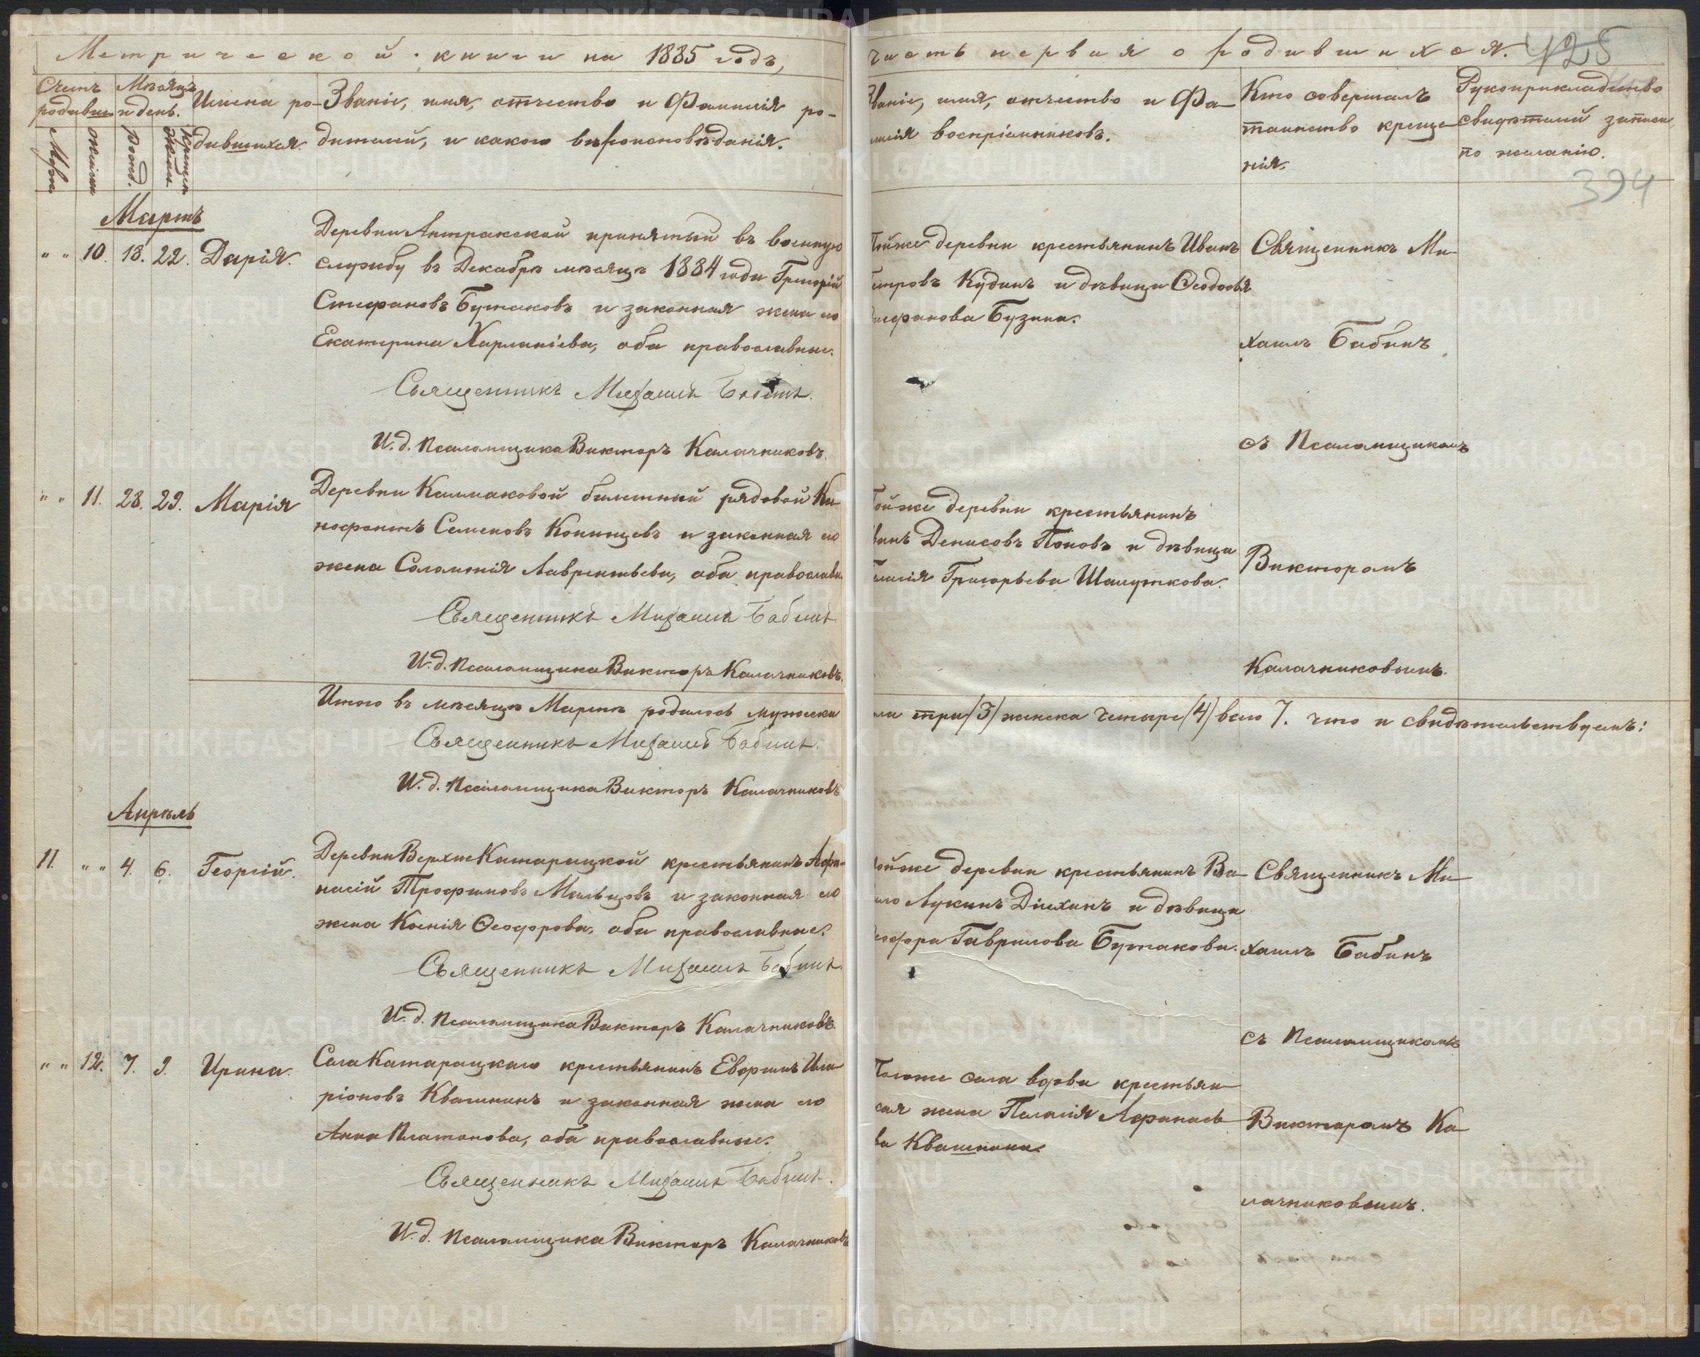 Метрической книги на 1885 годъ,
Счетъ родивш.
Мѣсяцъ и день.
Имена родившихся.
Званіе, имя, отчество и Фамилія ро-
дителей, и какого вѣроисповѣданія.
Муж.
женск.
рожд.
крещен.
Мартъ
" " 10. 18. 22. Дарія.
Деревни принятый въ военную
службу въ Декабрѣ мѣсяцѣ 1884 года Григорій
Стефановъ Бутаковъ и законная жена его
Екатерина Харлампіева, оба православные.
Священникъ Михаилъ Бабинъ.
И. д. Псаломщика Викторъ Калачниковъ.
" " 11. 28. 29. Марія
Деревни Калмаковой билетный рядовой Ки-
нофонтъ Семеновъ Копинцевъ и законная его
жена Соломонія Лаврентьева, оба православн.
Священникъ Михаилъ Бабинъ
И. д. Псаломщика Викторъ Калачниковъ.
Итого въ мѣсяцѣ Мартѣ родилось мужеска
Священникъ Михаилъ Бабинъ.
И. д. Псаломщика Викторъ Калачниковъ
Апрѣль
11. " " 4. 6. Георгій.
Деревни Верхне Катарацкой крестьянинъ Афа-
насій Трофимовъ Мальцовъ и законная его
жена Ксенія Ѳеодорова, оба православные.
Священникъ Михаилъ Бабинъ.
И. д. Псаломщика Викторъ Калачниковъ.
" " 12. 7. 9. Ирина.
Села Катарацкаго крестьянинъ Евфимъ Ила-
ріоновъ Квашнинъ и законная жена его
Анна Платонова, оба православные.
Священникъ Михаилъ Бабинъ.
И. д. Псаломщика Викторъ Калачниковъ
часть первая о родившихся.
425
394
Званіе, имя, отчество и Фа-
милія воспріемниковъ.
Кто совершалъ
таинство креще-
нія.
Рукоприкладство
свидѣтелей записи
по желанію.
Тойже деревни крестьянинъ Иванъ
Петровъ Кудинъ и дѣвица Ѳеодосья
Стефанова Бузина.
Священникъ Ми-
хаилъ Бабинъ
съ Псаломщикомъ
Викторомъ
Калачниковымъ.
Тойже деревни крестьянинъ
Денисовъ Поповъ и дѣвица
Григорьева Шалуткова.
ла три /3/ женска четыре /4/ всего 7. что и свидѣтельствуемъ:
Тойже деревни крестьянинъ Ва-
Лукинъ Діехинъ и дѣвица
Гаврилова Бутакова.
Священникъ Ми-
хаилъ Бабинъ
съ Псаломщикомъ
Викторомъ Ка-
лачниковымъ.
Тогоже села вдова крестьян-
ская жена Пелагія Афанасье-
ва Квашнина.
METRIKI.GASO-URAL.RU